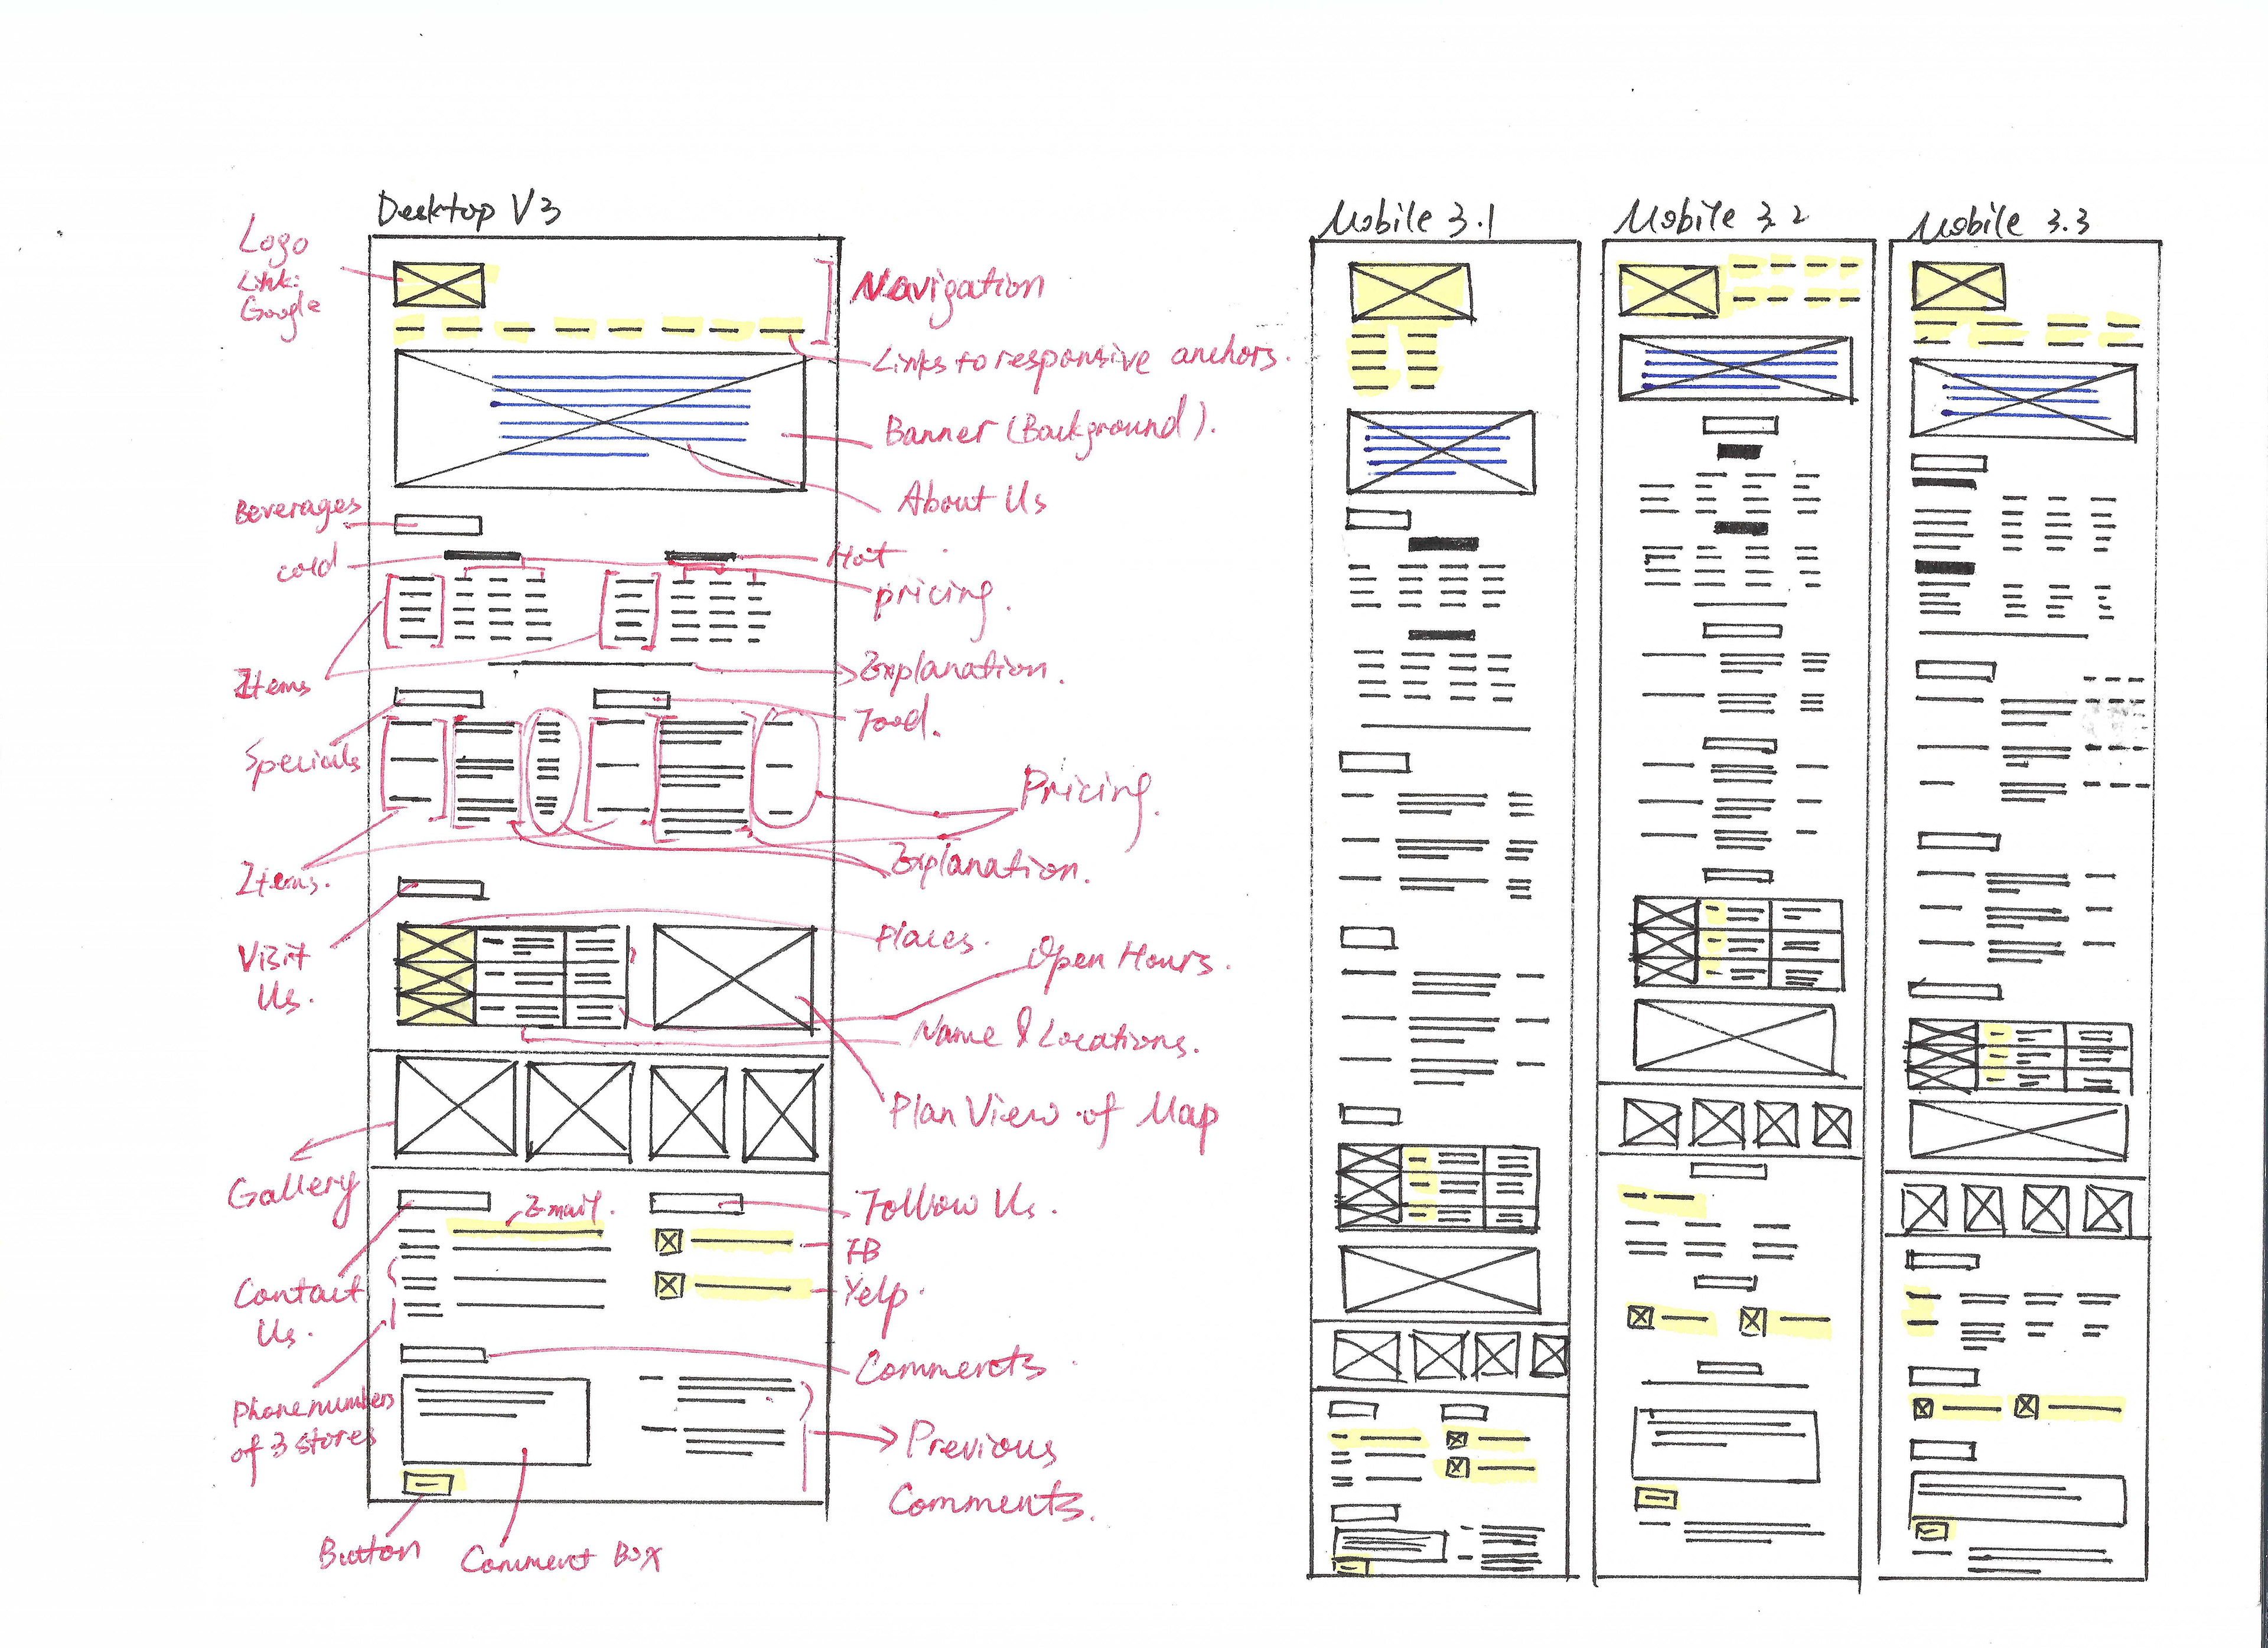 Desktop V3
Logo
Link:
Google
Navigation
Links to responsive anchors.
Banner (Background).
About Us
Beverages
cold
Hot
pricing.
Items
Explanation.
Specials
Food.
Pricing.
Items.
Explanation.
Visit
Us.
Places.
Open Hours.
Name & Locations.
Plan View of Map
Gallery
Email.
Follow Us.
FB
Yelp.
Contact
Us.
Comments
Phone numbers
of 3 stores
Previous
Comments.
Button
Comment Box
Mobile 3.1
Mobile 3.2
Mobile 3.3